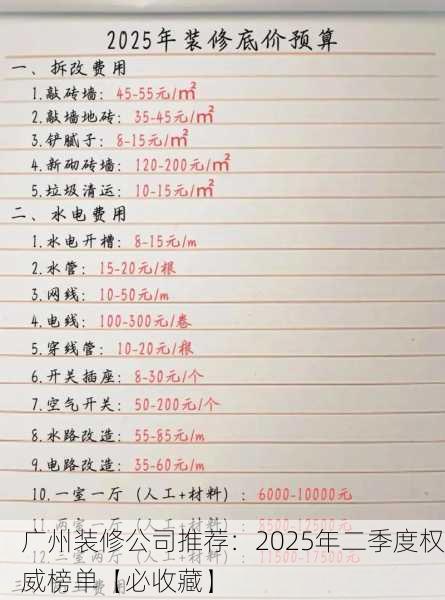 2025年装修底价预算
一、拆改费用
1.敲砖墙：45-55元/㎡
2.敲墙地砖：35-45元/㎡
3.铲腻子：8-15元/㎡
4.新砌砖墙：120-200元/㎡
5.垃圾清运：10-15元/㎡
二、水电费用
1.水电开槽：8-15元/m
2.水管：15-20元/根
3.网线：10-50元/m
4.电线：100-300元/卷
5.穿线管：10-20元/根
6.开关插座：8-30元/个
7.空气开关：50-200元/个
8.水路改造：55-85元/m
9.电路改造：35-60元/m
10.一室一厅（人工+材料）：6000-10000元
11.两室一厅（人工+材料）：8500-12500元
广州装修公司推荐：2025年二季度权
威榜单【必收藏】